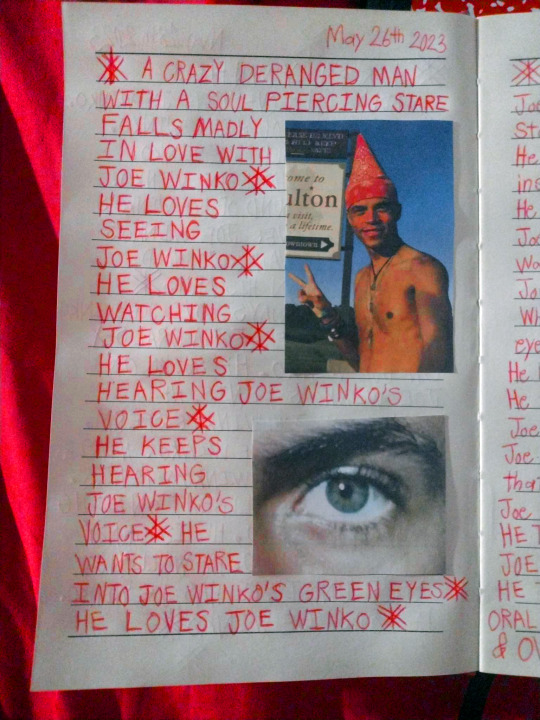 May 26th 2023
A CRAZY DERANGED MAN
WITH A SOUL PIERCING STARE
FALLS MADLY
IN LOVE WITH
JOE WINKO
HE LOVES
SEEING
JOE WINKO
HE LOVES
WATCHING
JOE WINKO
HE LOVES
HEARING JOE WINKO'S
VOICE
HE KEEPS
HEARING
JOE WINKO'S
VOICE HE
WANTS TO STARE
INTO JOE WINKO'S GREEN EYES
HE LOVES JOE WINKO
ome to
ulton
a visit,
a lifetime.
owntown
He
He
Joe
eye
He
He
Joe
Joe
Joe
HE
JOE
HE
ORAL
&